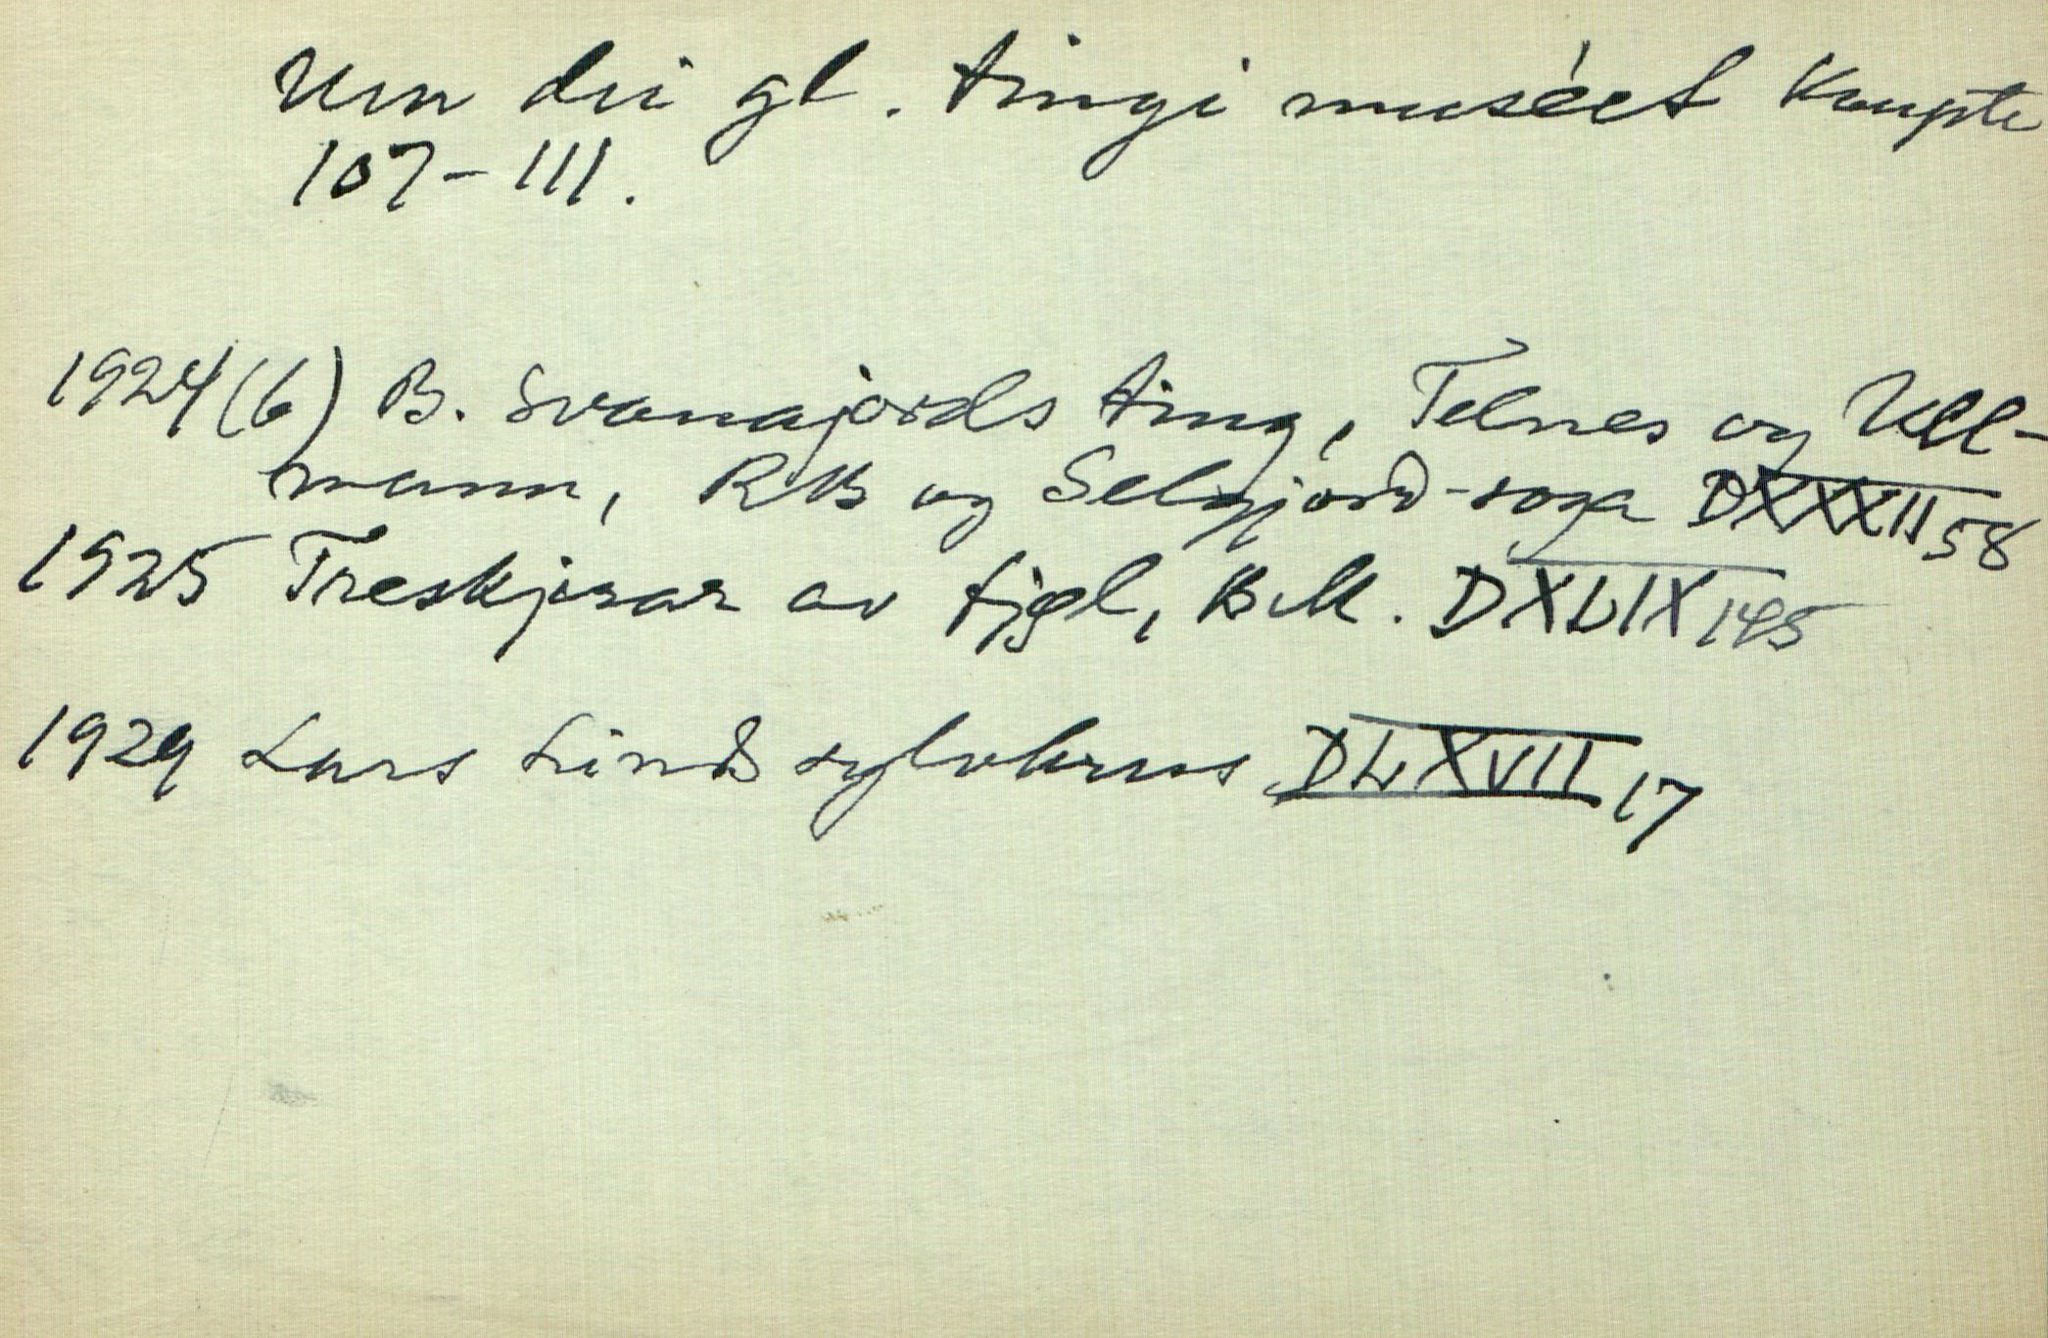 Um dei gl. tingi muséet kaupte
107-111.
1924(6) B. Svanajords ting, Telnes og Ull-
mann, RB og Seljord-soga DXXXII 58
1925 Treskjerar av tjgl, BM. DXLIX 145
1929 Lars Lind sylvkrus DLXVII 17